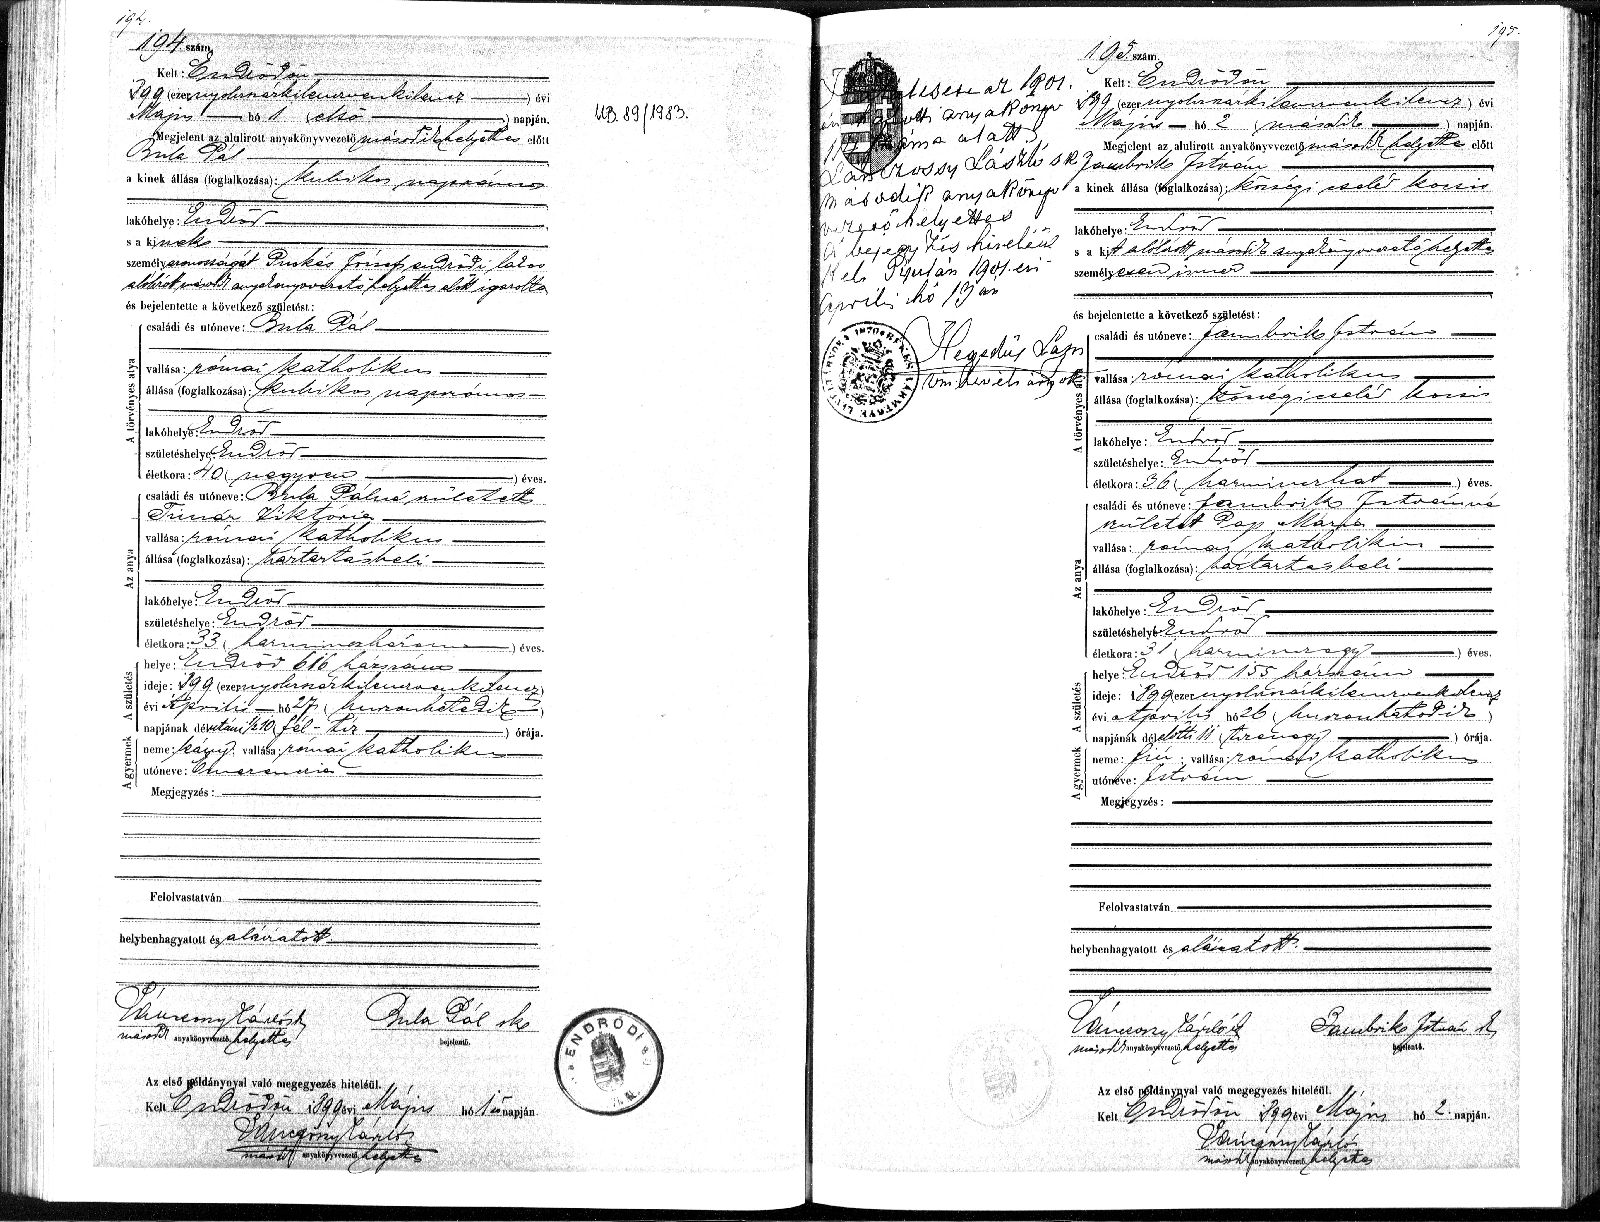 194.
194 szám.
Kelt: Endrődön
1899 (ezer nyolczszázkilenczvenkilencz) évi
Május hó 1 (első) napján.
Megjelent az alulirott anyakönyvvezető második helyettes előtt
Bula Pál
a kinek állása (foglalkozása): kubikos napszámos
lakóhelye: Endrőd
s a kinek
személyazonosságát Puskás József endrődi lakos
alólirott második anyakönyvvezető helyettes előtt igazolta
és bejelentette a következő születést:
A törvényes atya
családi és utóneve: Bula Pál
vallása: római katholikus
állása (foglalkozása): kubikos napszámos
lakóhelye: Endrőd
születéshelye: Endrőd
életkora: 40 (negyven) éves.
Az anya
családi és utóneve: Bula Pálné született
Timár Viktória
vallása: római katholikus
állása (foglalkozása): háztartásbeli
lakóhelye: Endrőd
születéshelye: Endrőd
életkora: 33 (harminczhárom) éves.
A születés
helye: Endrőd 616 házszám
ideje: 1899 (ezer nyolczszázkilenczvenkilencz)
évi Április hó 27 (huszonhetedik)
napjának délutáni ½10 (fél-tiz) órája.
A gyermek
neme: leány; vallása: római katholikus
utóneve: Emerenczia
Megjegyzés:
Felolvastatván
helybenhagyatott és aláiratott.
Bula Pál sk
második anyakönyvvezető helyettes
bejelentő.
Az első példánynyal való megegyezés hiteléül.
Kelt Endrődön 1899 évi Május hó 1 én napján.
második anyakönyvvezető helyettes
UB. 89/1983.
ENDRŐDI
1901.
anyakönyv
száma alatt
László sk
második anyakönyv
vezető helyettes
A bejegyzés hiteléül
Kelt Gyulán 1901. évi
április hó 13 án
Hegedűs
195.
195 szám.
Kelt: Endrődön
1899 (ezer nyolczszázkilenczvenkilencz) évi
Május hó 2 (második) napján.
Megjelent az alulirott anyakönyvvezető második helyettes előtt
Jambrik István
a kinek állása (foglalkozása): községi cseléd kocsis
lakóhelye: Endrőd
s a kit alólirott második anyakönyvvezető helyettes
személyesen ismer
és bejelentette a következő születést:
A törvényes atya
családi és utóneve: Jambrik István
vallása: római katholikus
állása (foglalkozása): községi cseléd kocsis
lakóhelye: Endrőd
születéshelye: Endrőd
életkora: 36 (harminczhat) éves.
Az anya
családi és utóneve: Jambrik Istvánné
született Pap Mária
vallása: római katholikus
állása (foglalkozása): háztartásbeli
lakóhelye: Endrőd
születéshelye: Endrőd
életkora: 31 (harminczegy) éves.
A születés
helye: Endrőd 155 házszám
ideje: 1899 (ezer nyolczszázkilenczvenkilencz
évi Április hó 26 (huszonhatodik)
napjának délelőtti 11 (tizenegy) órája.
A gyermek
neme: fiú; vallása: római katholikus
utóneve: István
Megjegyzés:
Felolvastatván
helybenhagyatott és aláiratott.
Jambrik István sk
második anyakönyvvezető helyettes
bejelentő.
Az első példánynyal való megegyezés hiteléül.
Kelt Endrődön 1899 évi Május hó 2. napján.
második anyakönyvvezető helyettes